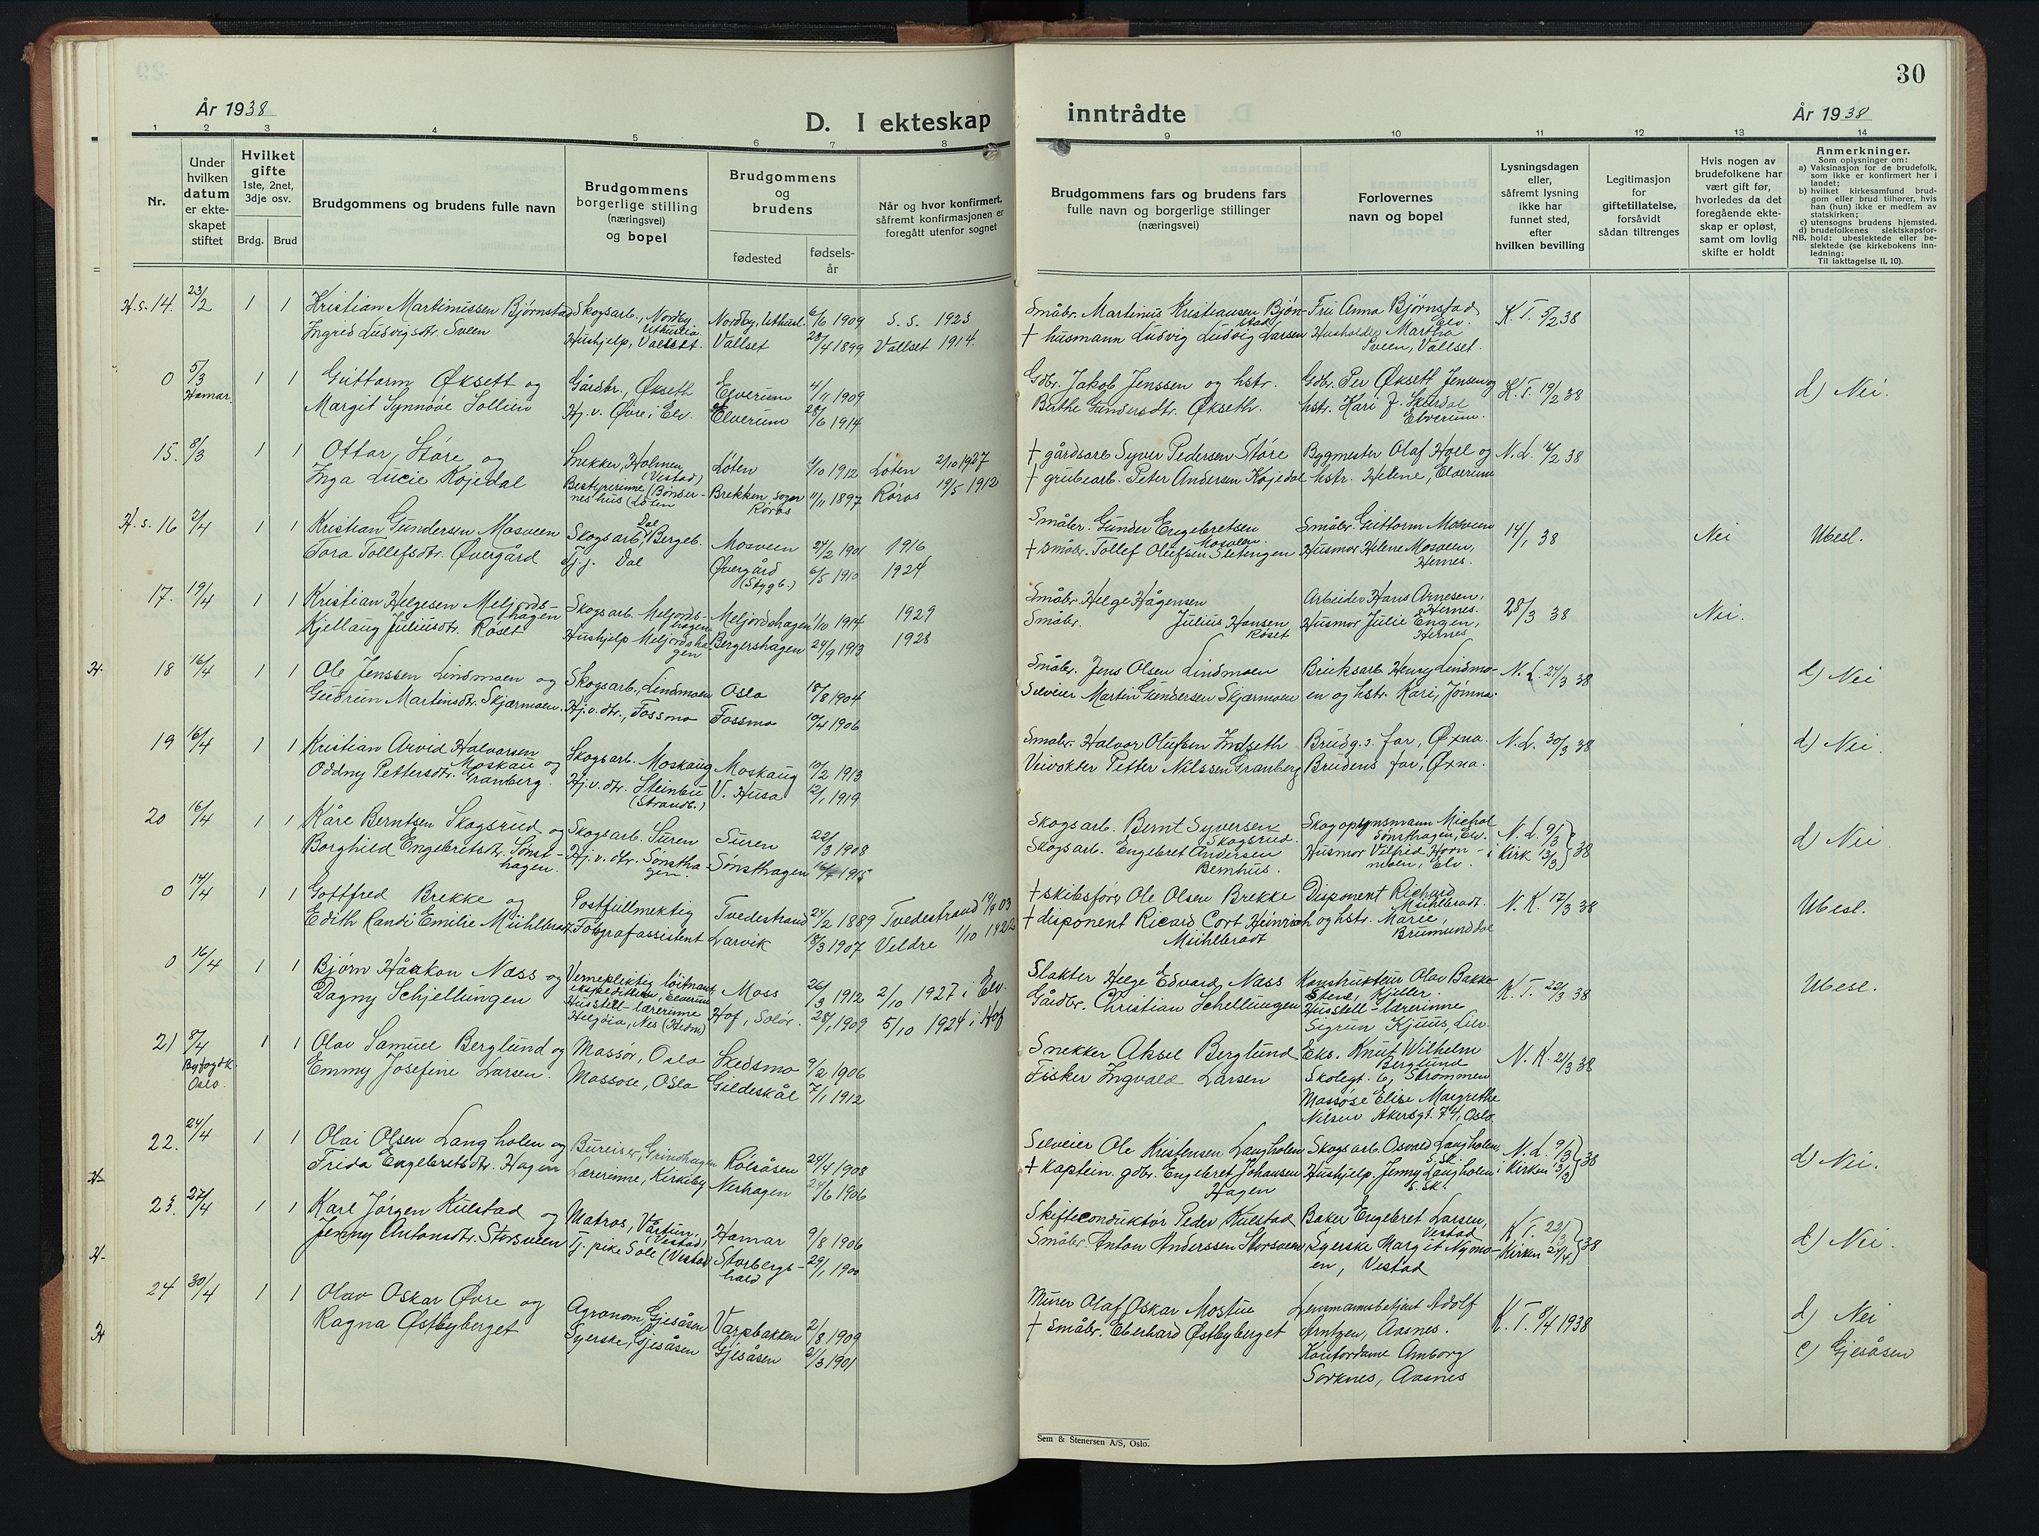 År 1938
D. I ekteskap
inntrådte
År 1938
30
1 2 3 4 5 6 7 8 9 10 11 12 13 14
Nr.
Under hvilken datum er ekteskapet stiftet
Hvilket gifte 1ste, 2net, 3dje osv.
Brdg. Brud
Brudgommens og brudens fulle navn
Brudgommens borgerlige stilling (næringsvei) og bopel
Brudgommens og brudens
fødested
fødselsår
Når og hvor konfirmert, såfremt konfirmasjonen er foregått utenfor sognet
Brudgommens fars og brudens fars fulle navn og borgerlige stillinger (næringsvei)
Forlovernes navn og bopel
Lysningsdagen eller, såfremt lysning ikke har funnet sted, efter hvilken bevilling
Legitimasjon for giftetillatelse, forsåvidt sådan tiltrenges
Hvis nogen av brudefolkene har vært gift før, hvorledes da det foregående ekteskap er opløst, samt om lovlig skifte er holdt
Anmerkninger.
Som oplysninger om:
a) Vaksinasjon for de brudefolk, som ikke er konfirmert her i landet;
b) hvilket kirkesamfund brudgom eller brud tilhører, hvis han (hun) ikke er medlem av statskirken;
c) utensogns brudens hjemsted.
d) brudefolkenes slektskapsforhold: ubeslektede eller beslektede (se kirkebokens innledning:
NB. Til iakttagelse II, 10).
H.s. 14. 23/2 1 1 Kristian Martinussen Bjørnstad Skogsarb., Nordby, Uthuslia Nordby, Uthusl. 6/6 1909 S.S. 1923 Småbr. Martinus Kristiansen Bjørnstad Fru Anna Bjørnstad Elv. K.T. 5/2 38
Ingrid Ludvigsdtr. Sveen Hushjelp, Vallset. Vallset 28/4 1899 Vallset 1914. + husmann Ludvig Ludvig Larsen Husholder Martha Sveen, Vallset.
0 5/3 Hamar. 1 1 Guttorm Øksett og Gårdbr., Økseth Elverum 4/11 1909 Gdbr. Jakob Jenssen og hstr. Gdbr. Per Øksett Jensen og K.T. 19/2 38 d) Nei.
Margit Synnøve Sollien Hj.v. Øvre i Elv. Elverum 28/6 1914 Berthe Gundersdtr. Økseth. hstr. Kari J. Skurdal Elverum.
15. 8/3 1 1 Ottar Støre og Snekker, Holmen, (Vestad) Løten 9/10 1912 Løten 2/10 1927 + gårdsarb Syver Pedersen Støre Bygmester Olaf Hoel og N.L. 16/2 38
Inga Lucie Kojedal Bestyrerinne (Bønserneshus (Løten Brekken sogn Røros 11/11 1897 Røros 19/5 1912 + grubearb. Peter Andersen Kojedal hstr. Helene, Elverum
H.s. 16 2/4 1 1 Kristian Gundersen Mosveen Skogsarb., Dal Bergeb. Mosveen 27/2 1901 1916 Småbr. Gunder Engebretsen Mosveen. Småbr. Guttorm Mosveen 14/1 38 Nei Ubesl.
Tora Tollefsdtr. Øvergård Tj.j. Dal Øvergård (Stygb.) 6/5 1910 1924 + småbr. Tollef Olufsen Sletengen Husmor Helene Mosveen, Hernes.
17. 19/4 1 1 Kristian Helgesen Meljordshagen Skogsarb. Meljordshagen Meljordshagen 1/10 1914 1929 Småbr. Helge Hågensen Arbeider Hans Arnesen, Hernes. 28/3 38 Nei.
Kjellaug Juliusdtr. Røset Hushjelp Meljordshagen Bergershagen 24/9 1913 1928 Småbr. Julius Hansen Røset Husmor Julie Engen, Hernes
H. 18 16/4 1 1 Ole Jenssen Lindmoen og Skogsarb., Lindmoen Oslo 18/8 1904 Småbr. Jens Olsen Lindmoen Bruksarb. Henry Lindmo- N.L. 24/3 38 d) Nei
Gudrun Martinsdtr. Skjærmoen. Hj.v.dtr., Fossmo Fossmo 10/4 1906 Selveier Martin Gundersen Skjærmoen en og hstr. Kari, Jømna.
19 16/4 1 1 Kristian Arvid Halvorsen Moskau og Skogsarb. Moskaug Moskaug 10/2 1913 Småbr. Halvor Olufsen Indseth Brudg.s. far, Øxna. N.L. 30/3 38 d) Nei.
Oddny Pettersdtr. Granberg. Hj.v.dtr. Steinbu (Strandb.) V. Husa 12/1 1919 Veivokter Petter Nilssen Granberg Brudens far, Øxna.
20 16/4 1 1 Kåre Berntsen Skogsrud og Skogsarb. Suren Suren 22/3 1908 Skogsarb. Bernt Syversen Skogsrud. Skogopsynsmann Michal Sønsthagen, Elv. N.L. 9/3 i Kirk 13/3 } 38 d) Nei.
Borghild Engebretsdtr. Sønsthagen. Hj.v.dtr. Sønsthagen. Sønsthagen 1915 Skogsarb. Engebret Andersen Bernhus. Husmor Vilfrid Hornmoen, Elv.
0 14/4 1 1 Gottfred Brekke og Postfullmektig Tvedestrand 24/2 1889 Tvedestrand 19/9 03 + skibsfører Ole Olsen Brekke Disponent Richard Mühlbradt. N.K. 17/3 38 Ubesl.
Edith Randi Emilie Mühlbradt Fotografassistent Larvik 18/3 1907 Veldre 1/10 1922 + disponent Ricard Cort Heinrich Mühlbradt og hstr. Marie, Brumunddal
0 16/4 1 1 Bjørn Håakon Næss og Vernepliktig løitnant, ekspedition, Elverum Moss 26/3 1912 2/10 1927 i Elv. Slakter Helge Edvard Næss Konstruktør Olav Bakkestene, Kjeller. K.T. 22/3 38 Ubesl.
Dagny Schjellungen Husstell-lærerinne Helgøia, Nes (Hedm) Hof, Solør. 28/1 1909 5/10 1924 i Hof Gårdbr. Christian Schellungen Husstell-lærerinne Sigrun Kjuus, Elv.
21 8/4 Byfogdk. Oslo. 1 1 Olav Samuel Berglund og Massør, Oslo Skedsmo 9/2 1906 Snekker Aksel Berglund Eks. Knut Wilhelm Berglund N.K. 21/3 38
Emmy Josefine Larsen. Massøse, Oslo Gildeskål 7/1 1912 Fisker Ingvald Larsen Skolegt. 6, Strømmen
Massøse Elise Margrethe Nilsen Akersgt. 74, Oslo.
22. 24/4 1 1 Olai Olsen Langholen og Bureiser, Grindhagen Rølsåsen 24/4 1908 Selveier Ole Kristensen Langholen Skogsarb. Osvald Langholen, S.Sk. N.L. 9/3 i Kirken 13/3 } 38 d) Nei.
H- Frida Engebretsdtr. Hagen Lærerinne, Kirkeby Nerhagen 24/6 1906 + kaptein gdbr. Engebret Johansen Hagen Hushjelp Jenny Langholen S.Sk.
23. 27/4 1 1 Karl Jørgen Kulstad og Matros, Vårtun, (Vestad) Hamar 9/8 1906 Skifteconduktør Peder Kulstad Baker Engebret Larsen, Vestad K.T. 22/3 Kirken 24/4 } 38 d) Nei.
H- Jenny Antonsdtr. Storsveen Tj.pike Sole (Vestad) Storbergshard 29/1 1900 Småbr. Anton Anderssen Storsveen Syerske Margit Nymoen, Vestad
24 30/4 1 1 Olav Oskar Øvre og Agronom, Gjesåsen Varpbakken 2/8 1909 Murer Olaf Oskar Mostue Lensmannsbetjent Adolf Arntzen, Aasnes. K.T. 8/4 1938 d) Nei
H Ragna Østbyberget Syerske, Gjesåsen Gjesåsen 21/3 1901 + Småbr. Eberhard Østbyberget Kontordame Amborg Sorknes, Aasnes c) Gjesåsen
Sem & Stenersen A/S, Oslo.